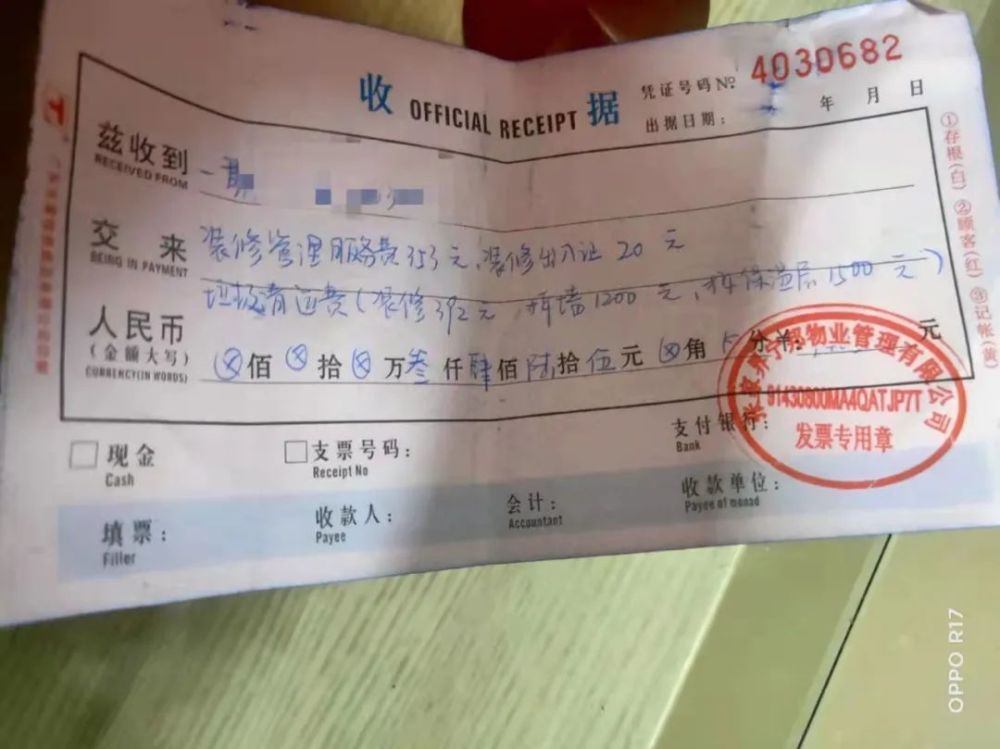 收 OFFICIAL RECEIPT 据
凭证号码№: 4030682
出据日期: 年 月 日
兹收到 一期
RECEIVED FROM
交来 装修管理服务费353元、装修出入证20元
BEING IN PAYMENT
垃圾清运费(装修392元,拆墙1200元,拆保温层1500元)
人民币
(金额大写) ⊗佰⊗拾⊗万叁仟肆佰陆拾伍元⊗角 分
CURRENCY(IN WORDS)
元
①存根(白) ②顾客(红) ③记帐(黄)
物业管理有限公司
91430800MA4QATJP7T
发票专用章
现金
Cash
支票号码:
Receipt No
支付银行:
Bank
填票:
Filler
收款人:
Payee
会计:
Accountant
收款单位:
Payee of monad
OPPO R17